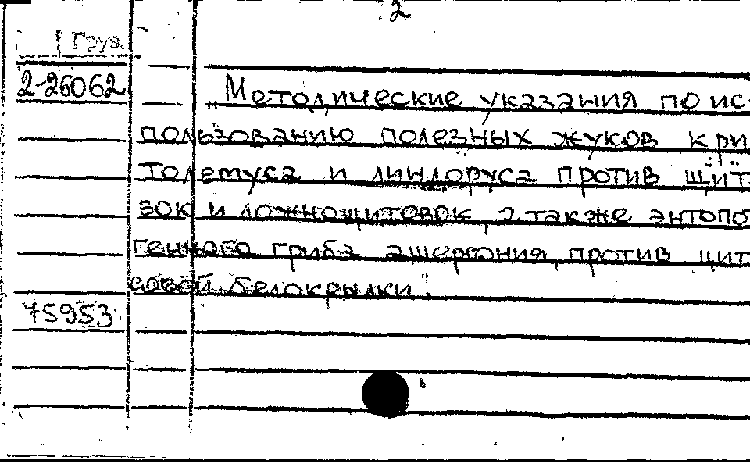 2
Груз.
2-26062
Методические указания по ис-
пользованию полезных жуков кри
толемуса и линдоруса против щит
вок и ложнощитовок, а также энтопо
генного гриба ашерсония против цит
совой белокрылки".
75953